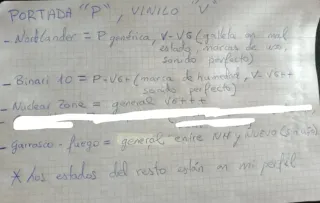 PORTADA "P", VINILO "V"
- Northlander = P genérica, V-VG (galleta en mal
estado, marcas de uso,
sonido perfecto)
- Binari 10 = P-VG+ (marca de humedad, V=VG++
sonido perfecto)
- Nuclear Zone = general VG+++
- Garrasco - fuego = general entre NM y nuevo
* Los estados del resto están en mi perfil